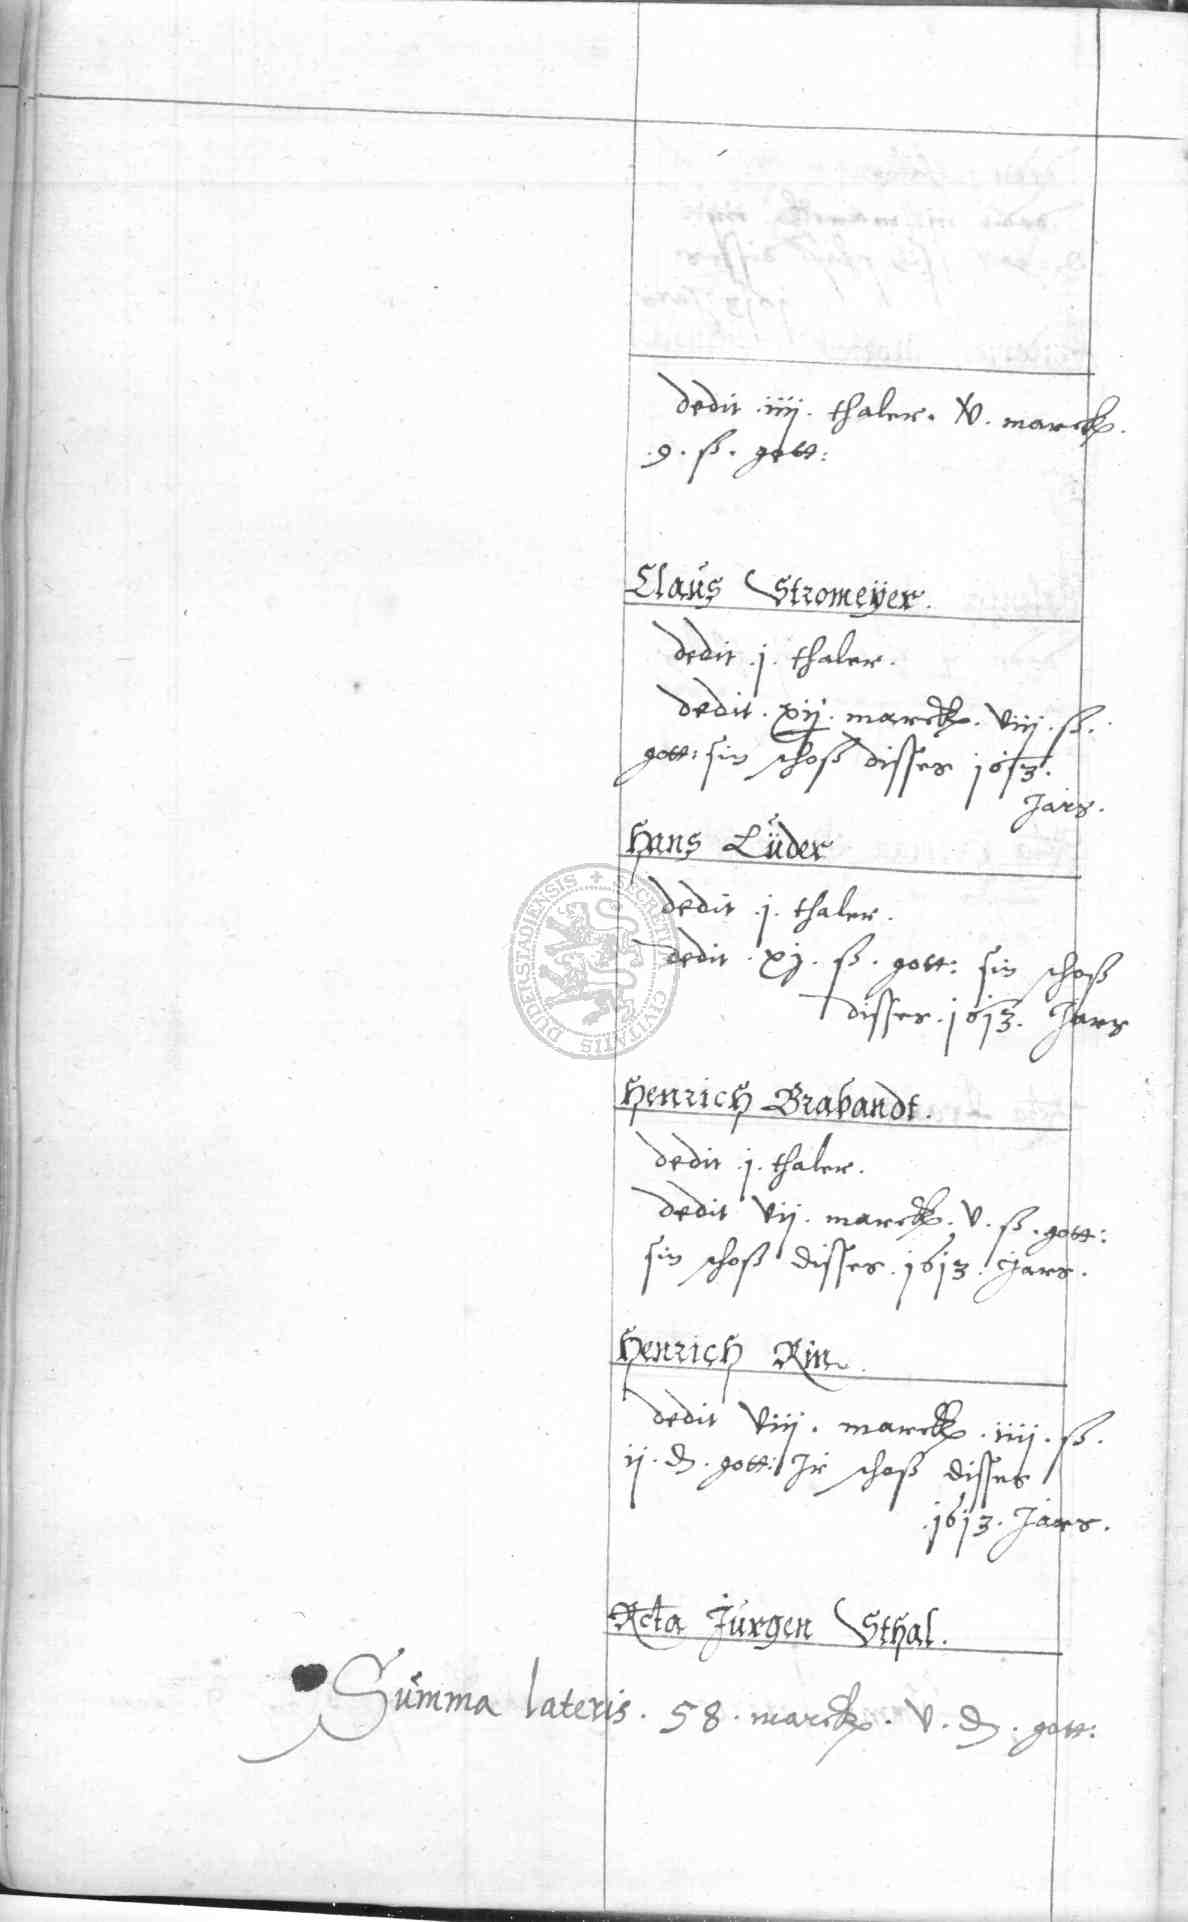 dedit .iiij. thaler. v. marck.
.9. ß. gott:
Claus Stromeÿer.
dedit .j. thaler.
dedit. xij. marck. viij. ß.
gott: sin schoß disses 1613.
Jars.
Hans Lüder
dedit .j. thaler.
dedit. xj. ß. gott: sin schoß
disses. 1613. Jars
Henrich Brabandt.
dedit .j. thaler.
dedit vij. marck. v. ß. gott:
sin schoß disses. 1613. Jars.
Henrich Rin.
dedit viij. marck. iiij. ß.
ij. d. gott: Jr schoß disses
.1613. Jars.
Relicta Jürgen Sthal.
Summa lateris. 58. marck. v. d. gott:
SECRETUM CIVITATIS DUDERSTADIENSIS